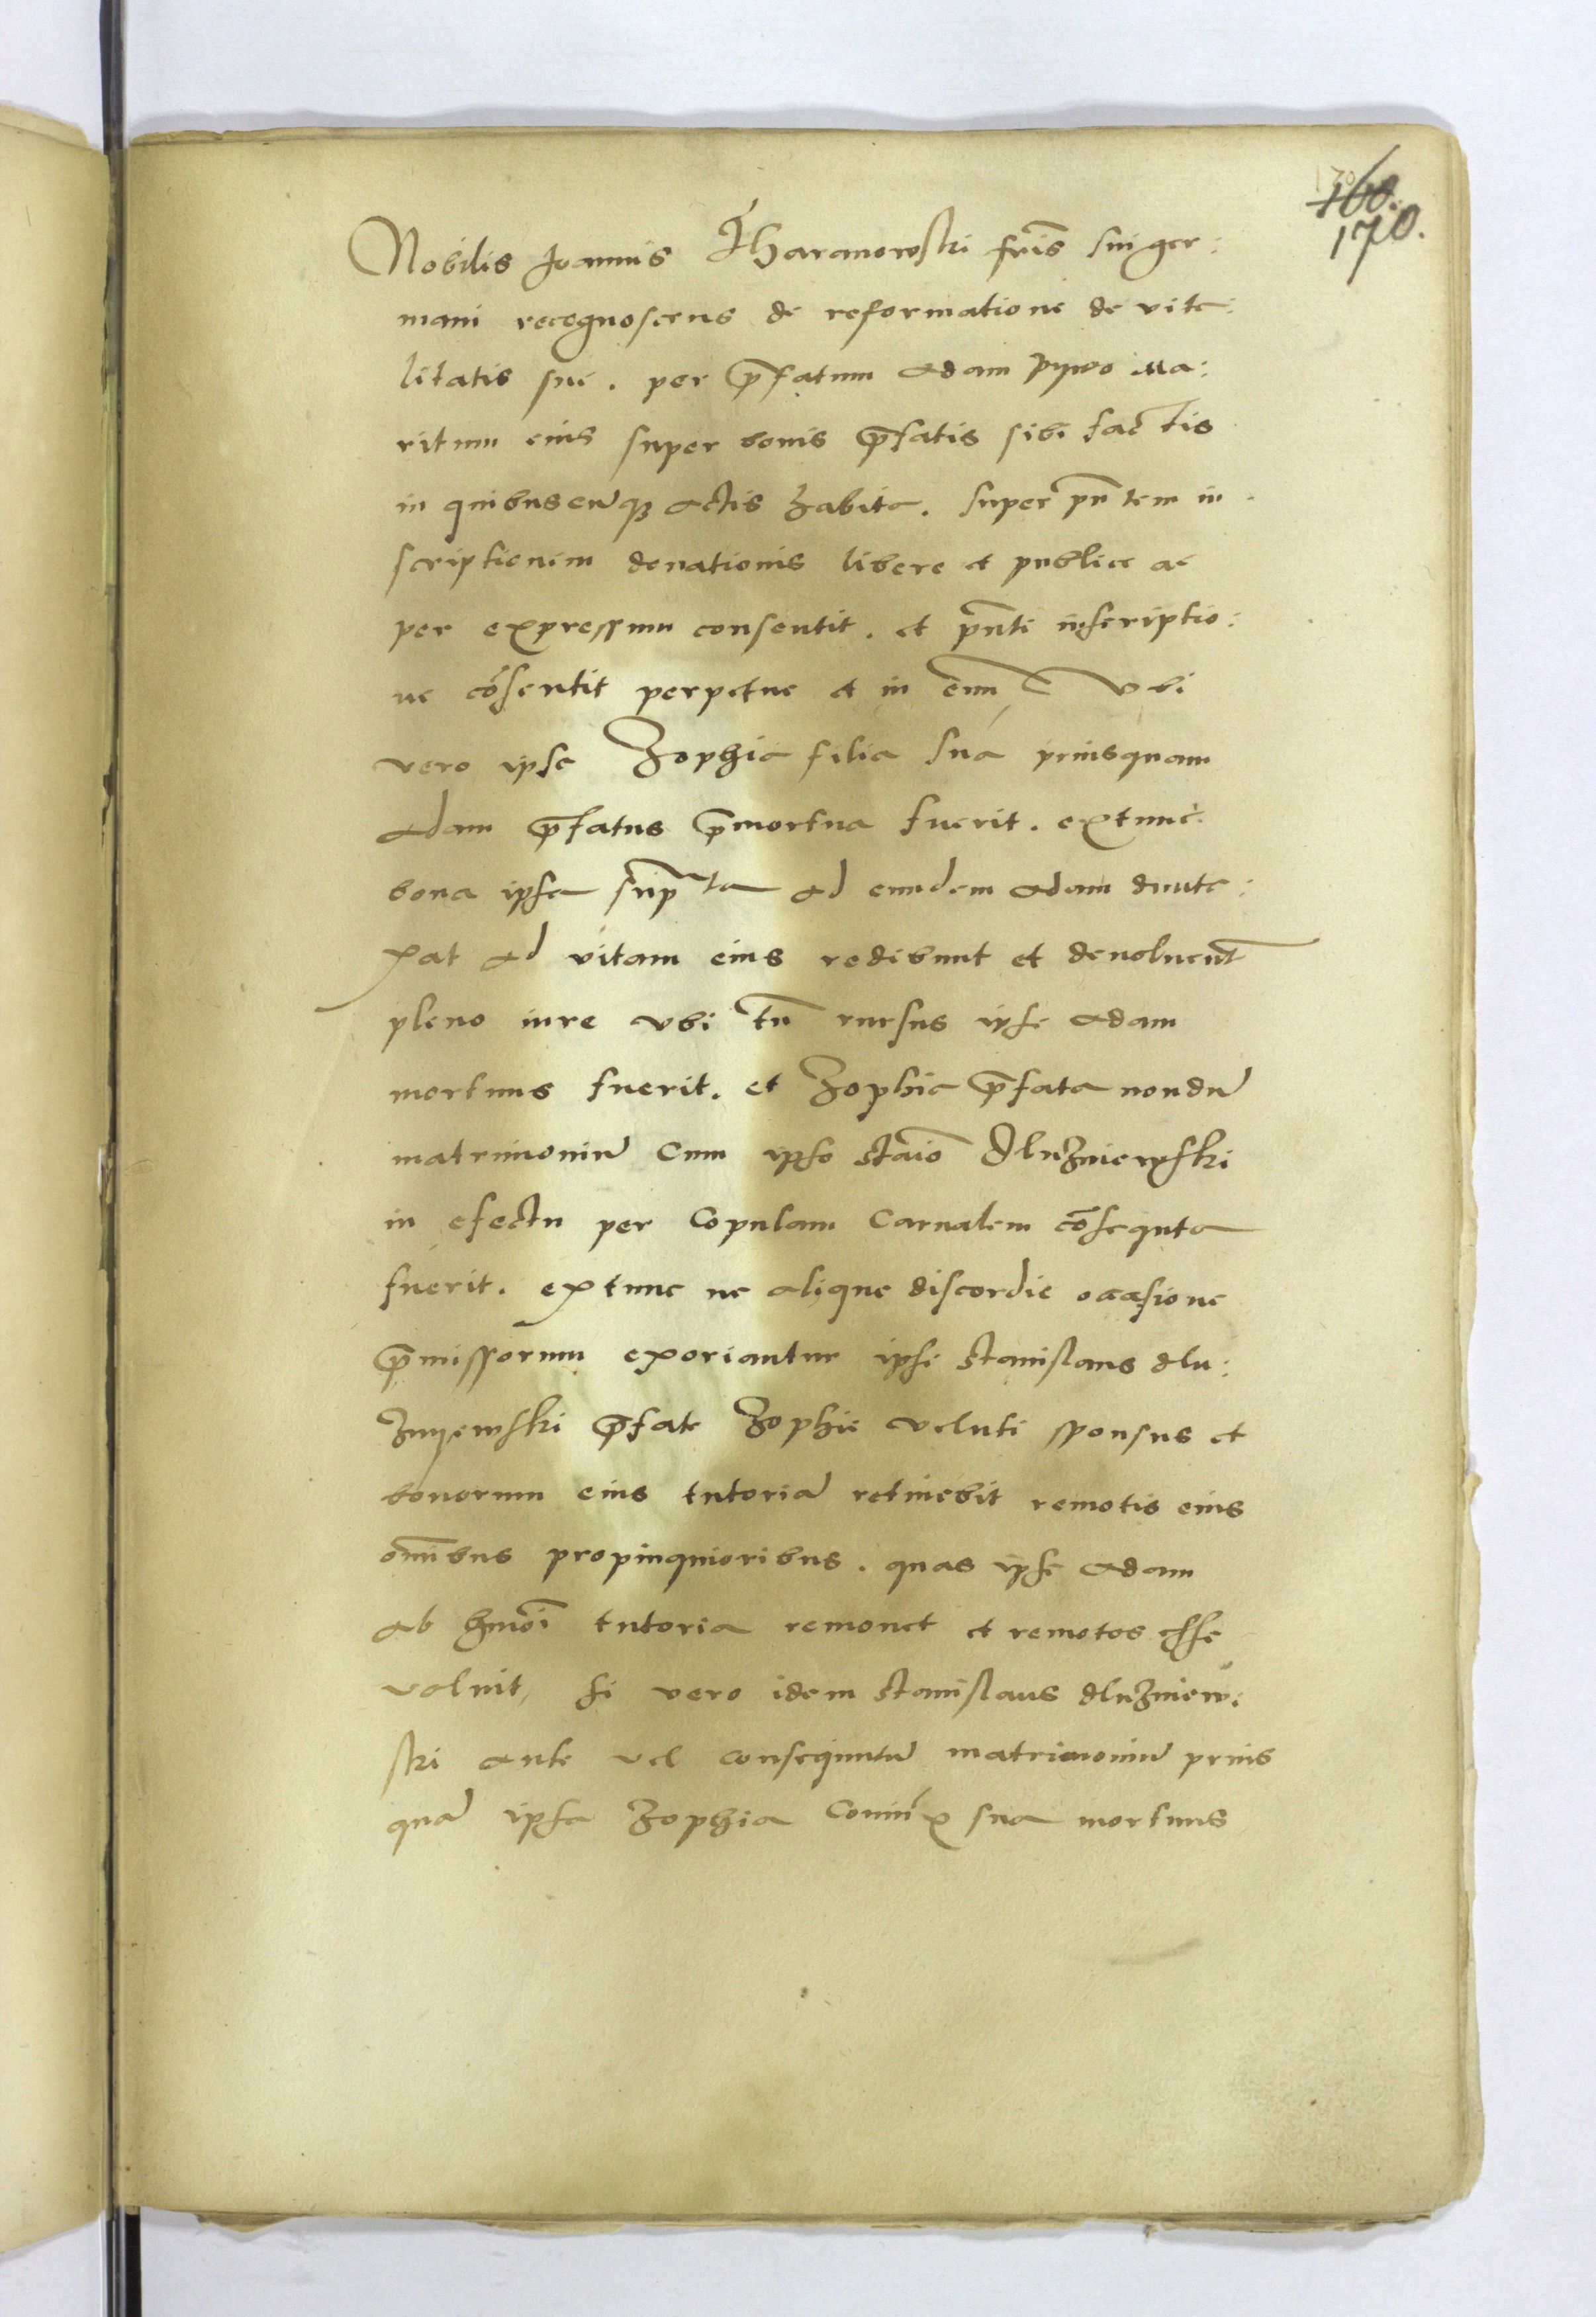 160.
170.
Nobilis Joannis Tharanowski fr̃is sui ger:
mani recognoscens de reformatione de vita:
litatis sue. per p̃fatum Adam Pywo Ma:
ritum eius super bonis p̃fatis sibi factis
in quibuscũqꝫ actis habita. super pñtem in
scriptionem donationis libere et publice ac
per expressum consentit. et pñti inscriptio:
ne cõsentit perpetue et in eum Vbi
vero ipsa Zophia filia sua priusquam
Adam p̃fatus p̃mortua fuerit. extunc
bona ipsa sup̃ta ad eundem Adam dunta:
xat ad vitam eius redibunt et devoluent̃
pleno iure vbi tñ rursus ipse Adam
mortuus fuerit. et Zophia p̃fata nondũ
matrimoniũ Cum ipso Stãio Dluzniewski
in efectu per Copulam Carnalem cõsequta
fuerit. extunc ne alique discordie occasione
p̃missorum exoriantur ipse Stanislaus dlu:
znyewski p̃fate Zophie veluti sponsus et
bonorum eius tutoriã retinebit remotis eius
om̃ibus propinquioribus. quas ipse Adam
ab hm̃oi tutoria remouet et remotos esse
voluit, si vero idem Stanislaus dluzniew:
ski ante vel consequutũ matrimoniũ prius
quã ipsa Zophia Coniũx sua mortuus